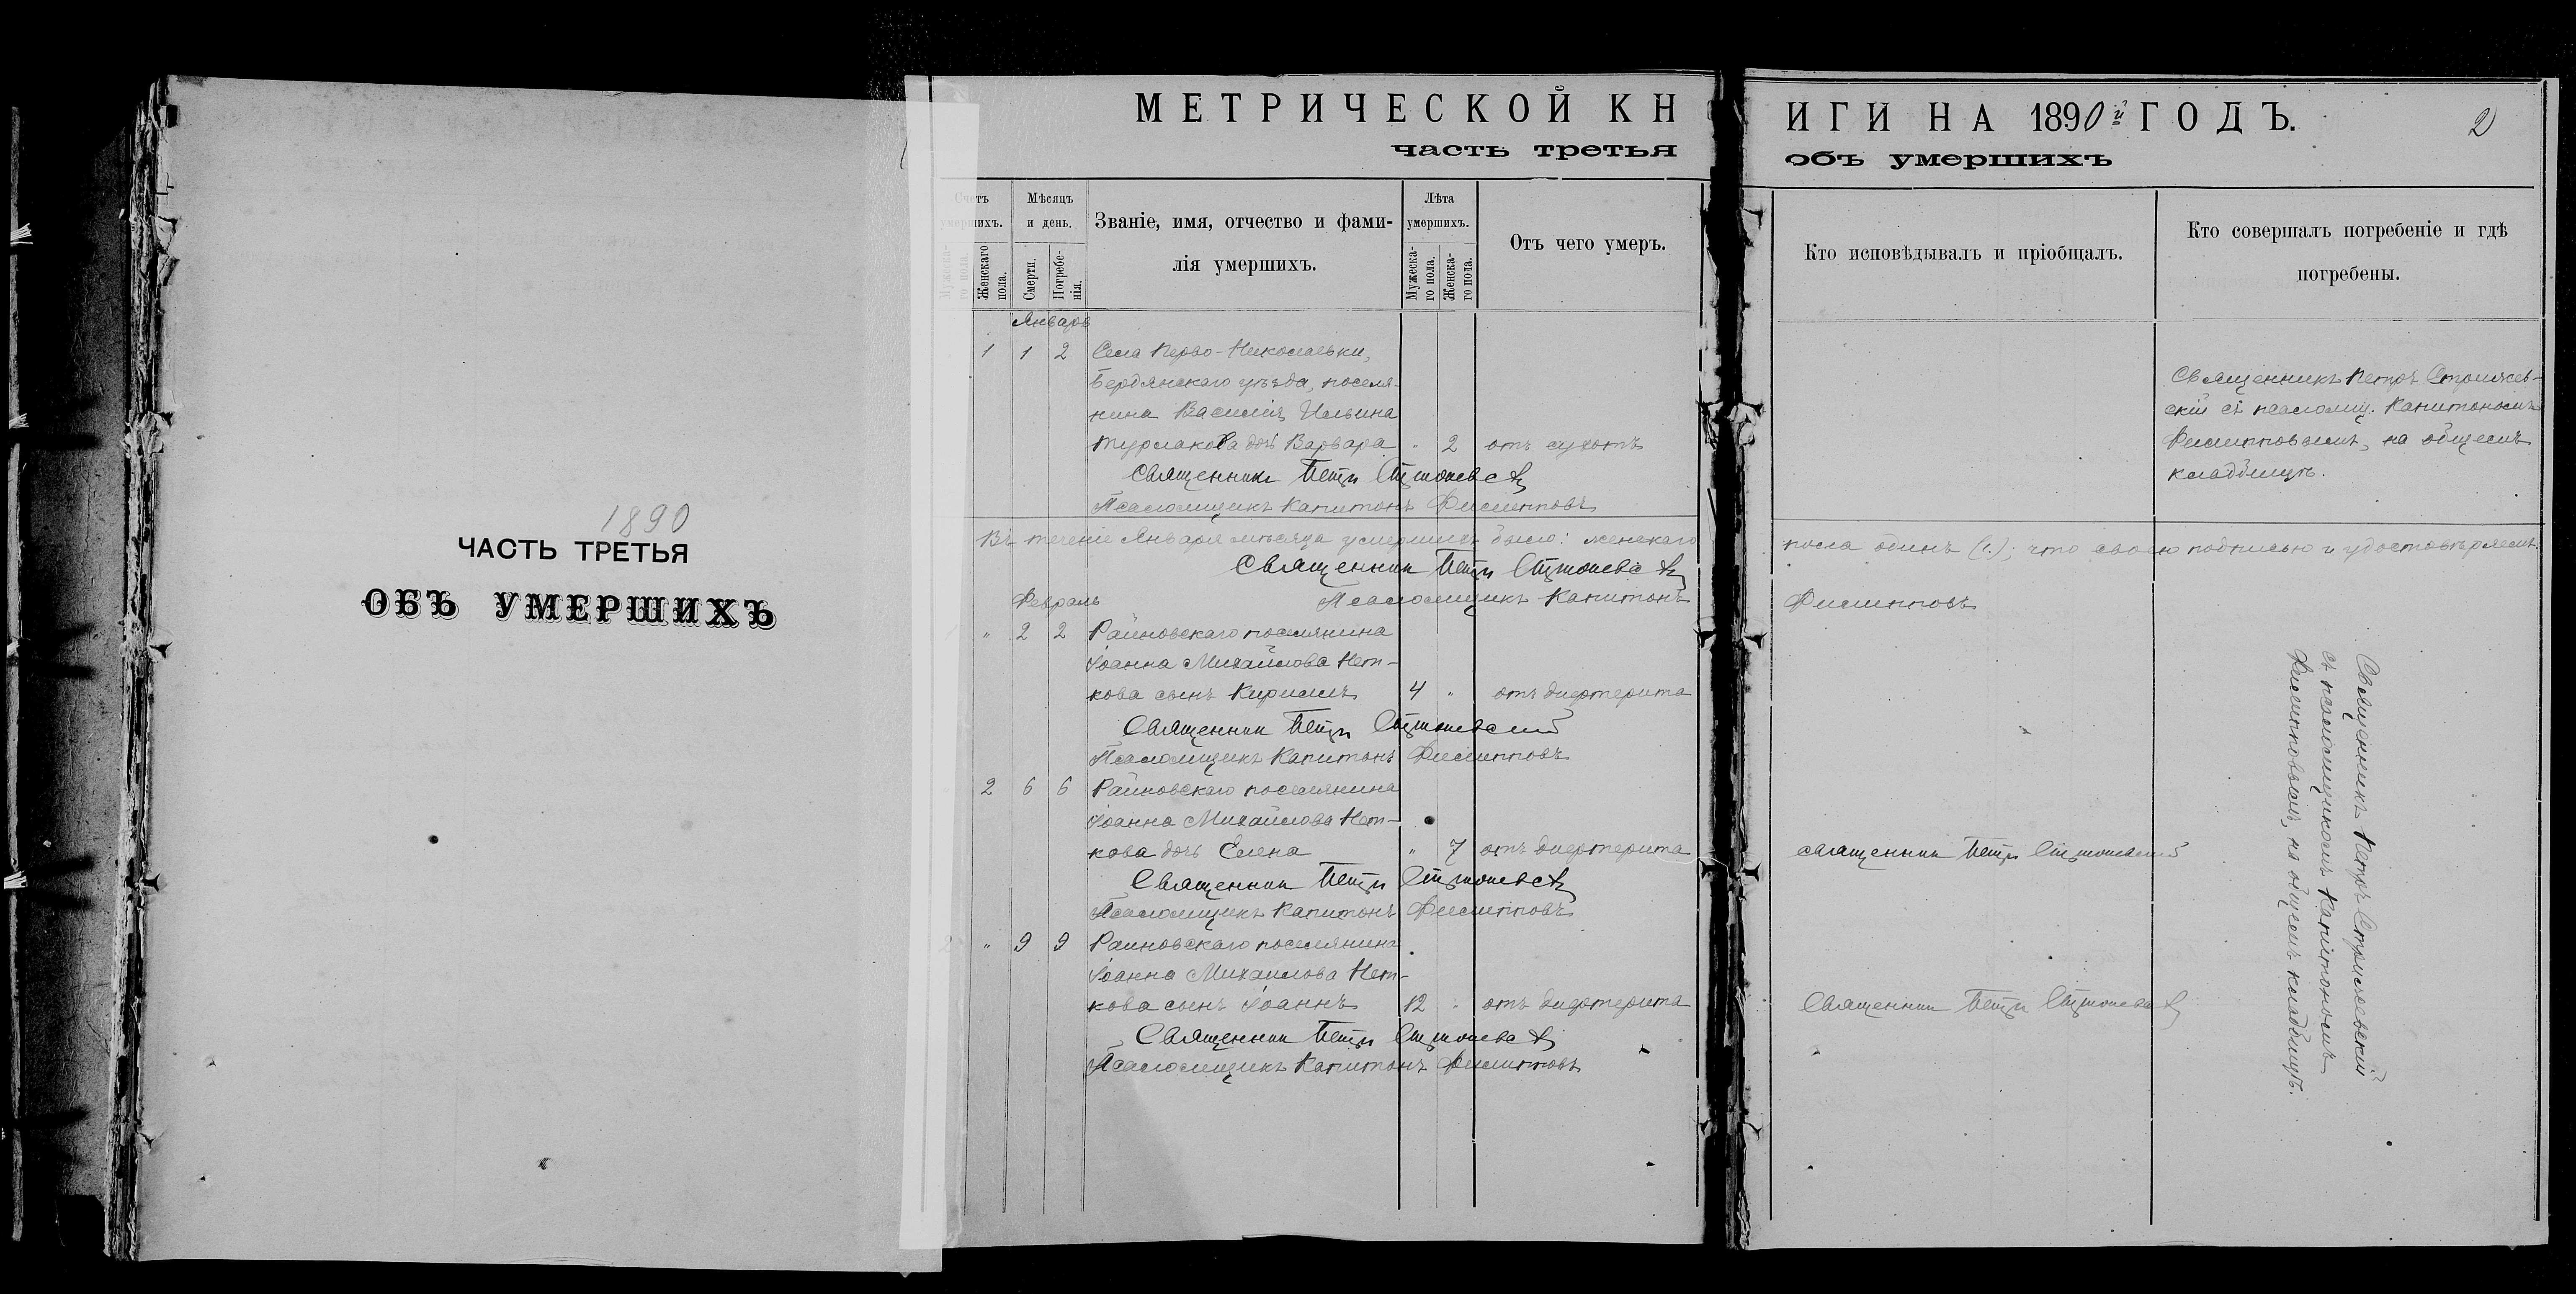 1890
ЧАСТЬ ТРЕТЬЯ
ОБЪ УМЕРШИХЪ
МЕТРИЧЕСКОЙ КН
часть третья
Счетъ умершихъ.
Мужеска-го пола.
Женскаго пола.
Мѣсяцъ и день.
Смерти.
Погребе-нія.
Званіе, имя, отчество и фами-
лія умершихъ.
Лѣта умершихъ.
Мужеска-го пола.
Женска-го пола.
Отъ чего умеръ.
Январь
1 1 2 Села Перво-Николаевки,
Бердянскаго уѣзда, поселя-
нина Василія Ильина
Турлакова дочь Варвара " 2 отъ сухотъ
Священникъ Петръ Стрижевскій
Псаломщикъ Капитонъ Филипповъ
Въ теченіе Января мѣсяца умершихъ было: женскаго
Священникъ Петръ Стрижевскій
Февраль Псаломщикъ Капитонъ
" 2 2 Райновскаго поселянина
Іоанна Михайлова Нет-
кова сынъ Кириллъ 4 " отъ дифтерита
Священникъ Петръ Стрижевскій
Псаломщикъ Капитонъ Филипповъ
2 6 6 Райновскаго поселянина
Іоанна Михайлова Нет-
кова дочь Елена " 7 отъ дифтерита
Священникъ Петръ Стрижевскій
Псаломщикъ Капитонъ Филипповъ
" 9 9 Райновскаго поселянина
Іоанна Михайлова Нет-
кова сынъ Іоаннъ 12 " отъ дифтерита
Священникъ Петръ Стрижевскій
Псаломщикъ Капитонъ Филипповъ
ИГИ НА 1890й ГОДЪ.
2
объ умершихъ
Кто исповѣдывалъ и пріобщалъ.
Кто совершалъ погребеніе и гдѣ
погребены.
Священникъ Петръ Стрижев-
скій съ псаломщ. Капитономъ
Филипповымъ, на общемъ
кладбищѣ.
пола одинъ (1.); что своею подписью и удостовѣряемъ.
Филипповъ
Священникъ Петръ Стрижевскій
Священникъ Петръ Стрижевскій
Священникъ Петръ Стрижевскій
съ псаломщикомъ Капитономъ
Филипповымъ, на общемъ кладбищѣ.